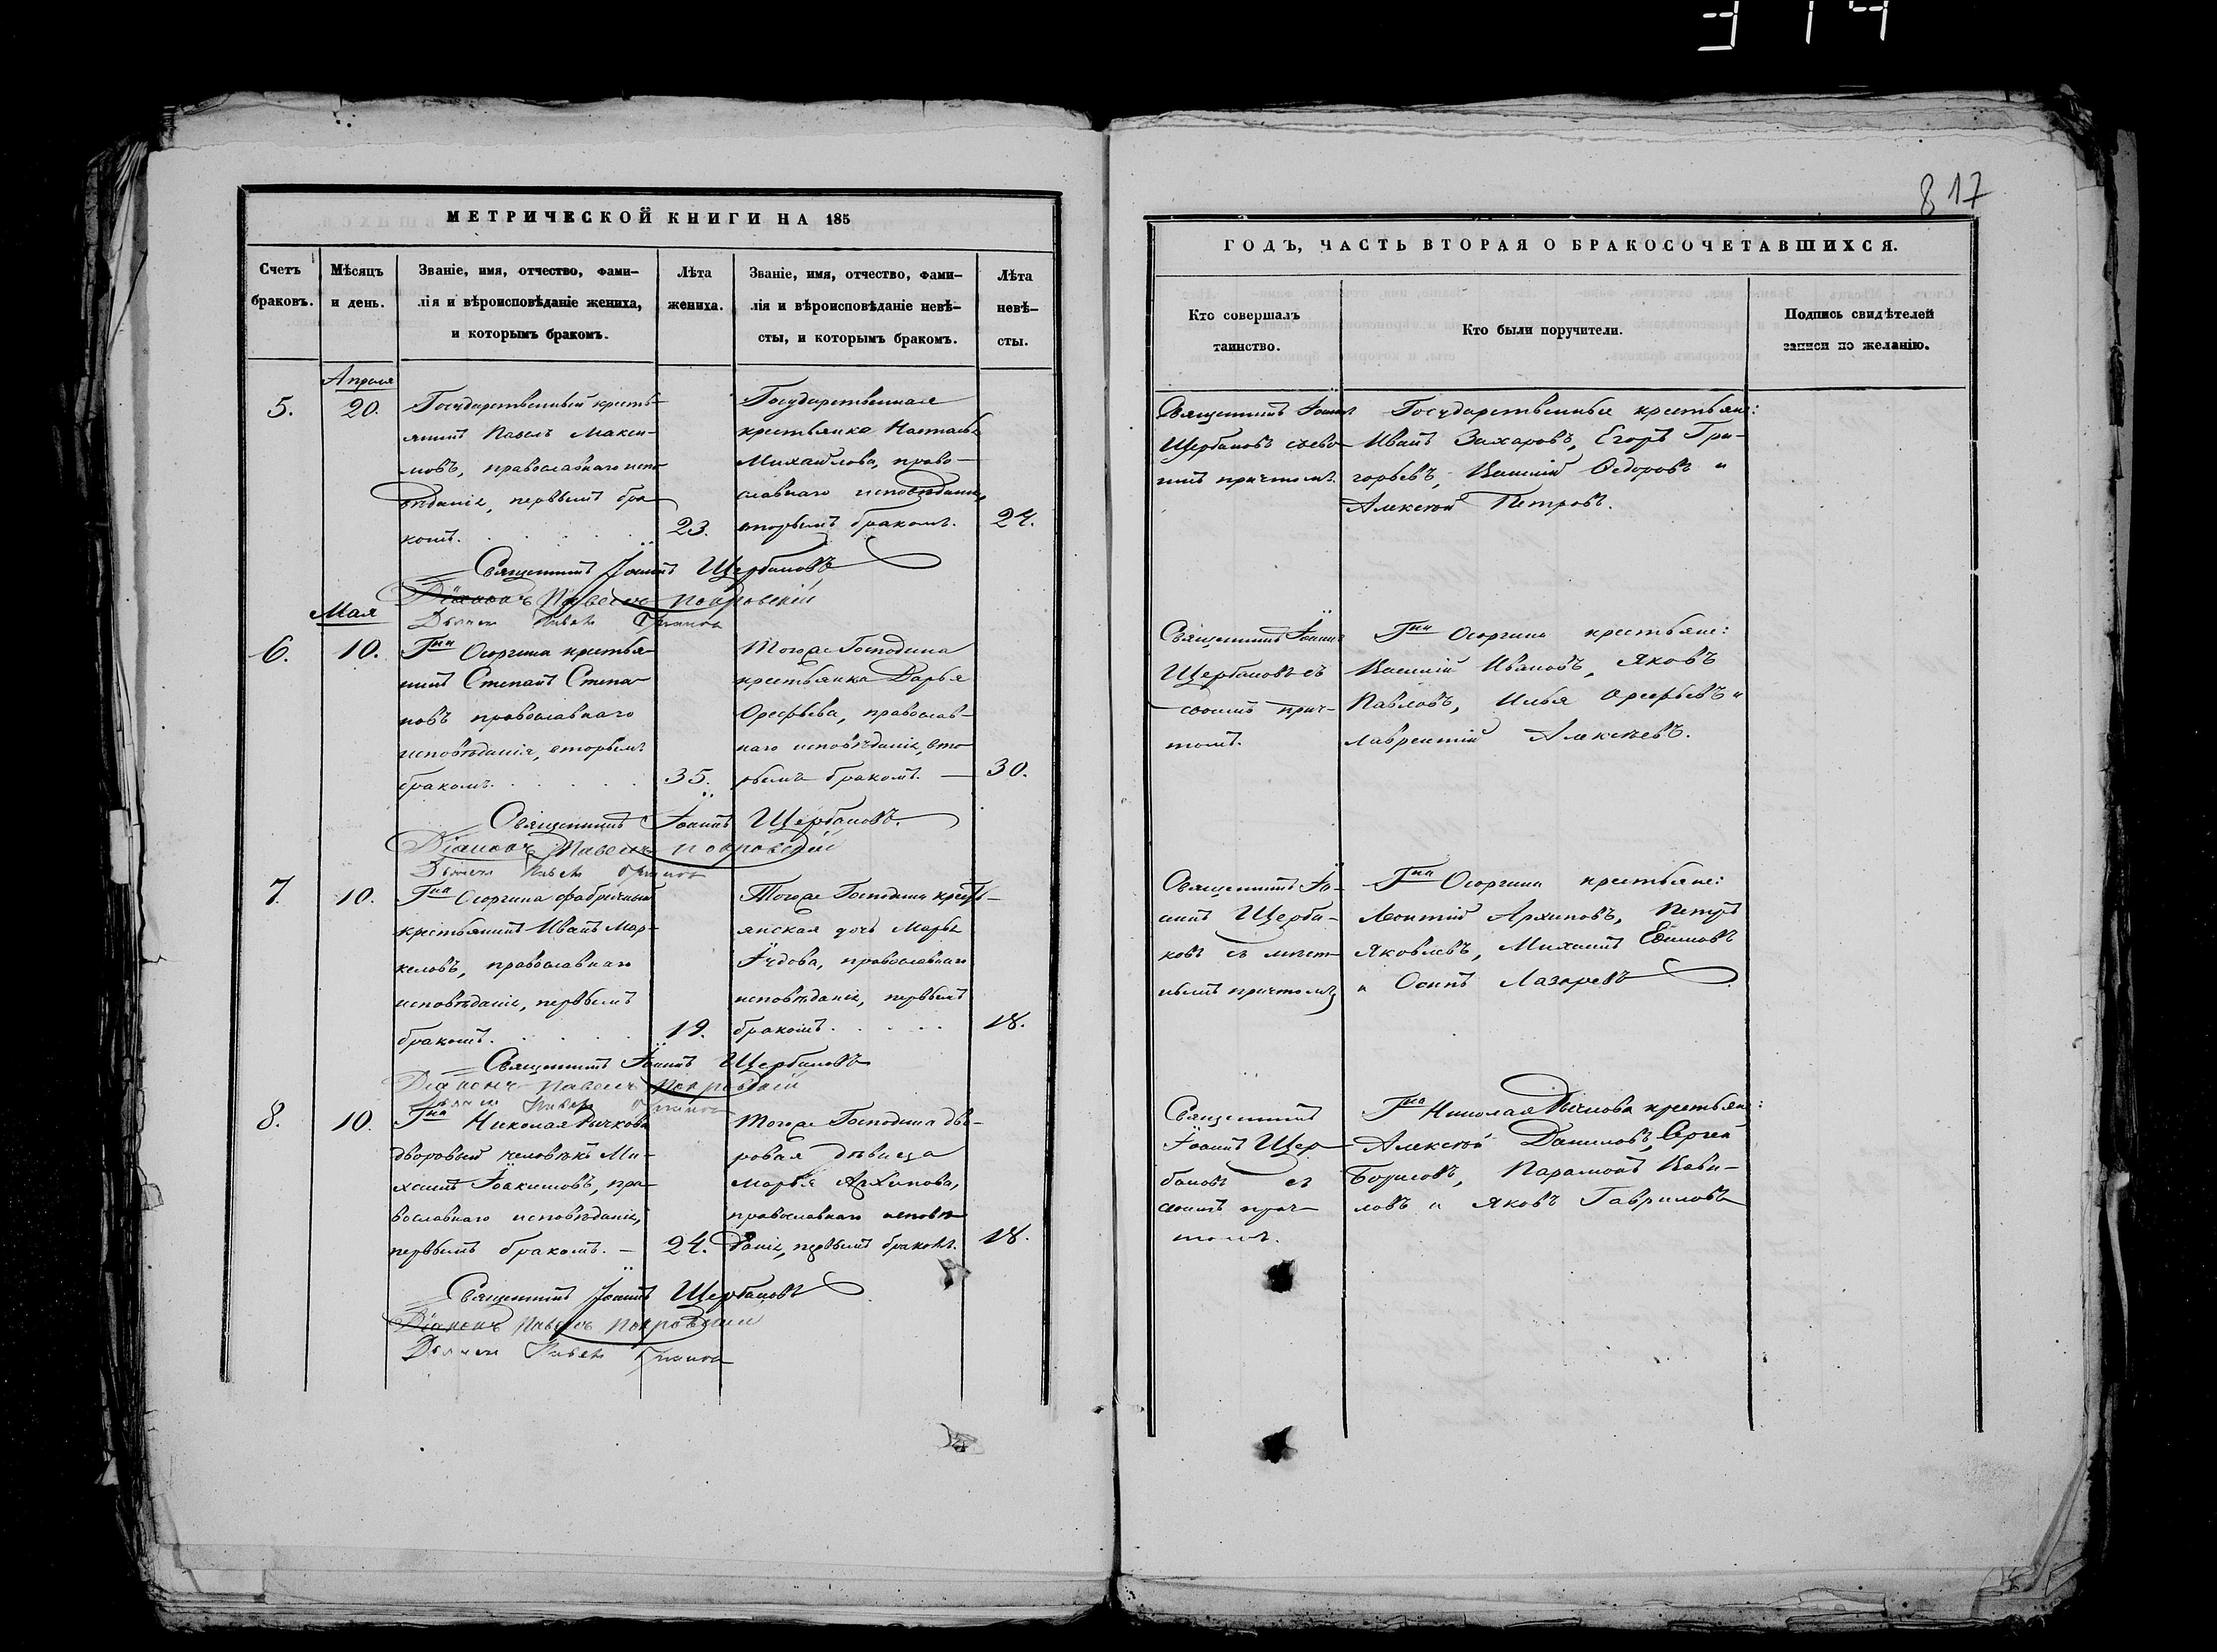 314
817
МЕТРИЧЕСКОЙ КНИГИ НА 185
Счетъ браковъ.
Мѣсяцъ и день.
Званіе, имя, отчество, фами-
лія и вѣроисповѣданіе жениха,
и которымъ бракомъ.
Лѣта жениха.
Званіе, имя, отчество, фами-
лія и вѣроисповѣданіе невѣ-
сты, и которымъ бракомъ.
Лѣта невѣ-
сты.
Апреля
5.
20.
Государственный кресть-
янинъ Павелъ Макси-
мовъ, православнаго испо-
вѣданія, первымъ бра
комъ.
23.
Государственная
крестьянка Настасья
Михайлова, право-
славнаго исповѣданія,
вторымъ бракомъ.
24.
Священникъ Іоаннъ Щербаковъ
Діаконъ Павелъ Покровскій
Мая
6.
10.
Гна Осоргина крестья
нинъ Степанъ Степа-
новъ православнаго
исповѣданія, вторымъ
бракомъ.
35.
Тогоже Господина
крестьянка Дарья
Орефьева, православ-
наго исповѣданія, вто
рымъ бракомъ. —
30.
Священникъ Іоаннъ Щербаковъ.
Діаконъ Павелъ Покровскій
7.
10.
Гна Осоргина фабричный
крестьянинъ Иванъ Мар-
келовъ, православнаго
исповѣданія, первымъ
бракомъ.
19.
Тогоже Господина кресть-
янская дочь Марья
Іудова, православнаго
исповѣданія, первымъ
бракомъ.
18.
Священникъ Іоаннъ Щербаковъ
Діаконъ Павелъ Покровскій
8.
10.
Гна Николая Рычкова
дворовый человѣкъ Ми-
хаилъ Іоакимовъ, пра-
вославнаго исповѣданія,
первымъ бракомъ. —
24.
Тогоже Господина дво-
ровая дѣвица
Марья Архипова,
православнаго исповѣ
данія, первымъ бракомъ.
18.
Священникъ Іоаннъ Щербаковъ
Діаконъ Павелъ Покровскій
ГОДЪ, ЧАСТЬ ВТОРАЯ О БРАКОСОЧЕТАВШИХСЯ.
Кто совершалъ
таинство.
Кто были поручители.
Подпись свидѣтелей
записи по желанію.
Священникъ Іоаннъ
Щербаковъ съ сво
имъ причтомъ.
Государственные крестьяне:
Иванъ Захаровъ, Егоръ Гри-
горьевъ, Василій Ѳедоровъ и
Алексѣй Петровъ.
Священникъ Іоаннъ
Щербаковъ съ
своимъ прич-
томъ.
Гна Осоргина крестьяне:
Василій Ивановъ, Яковъ
Павловъ, Илья Орефьевъ и
Лаврентій Алексѣевъ.
Священникъ Іо-
аннъ Щерба-
ковъ съ мѣст-
нымъ причтомъ
Гна Осоргина крестьяне:
Леонтій Архиповъ, Петръ
Яковлевъ, Михаилъ Ефимовъ
и Осипъ Лазаревъ
Священникъ
Іоаннъ Щер
баковъ съ
своимъ прич-
томъ.
Гна Николая Рычкова крестьяне:
Алексѣй Даниловъ, Сергей
Борисовъ, Парамонъ Вави-
ловъ и Яковъ Гавриловъ